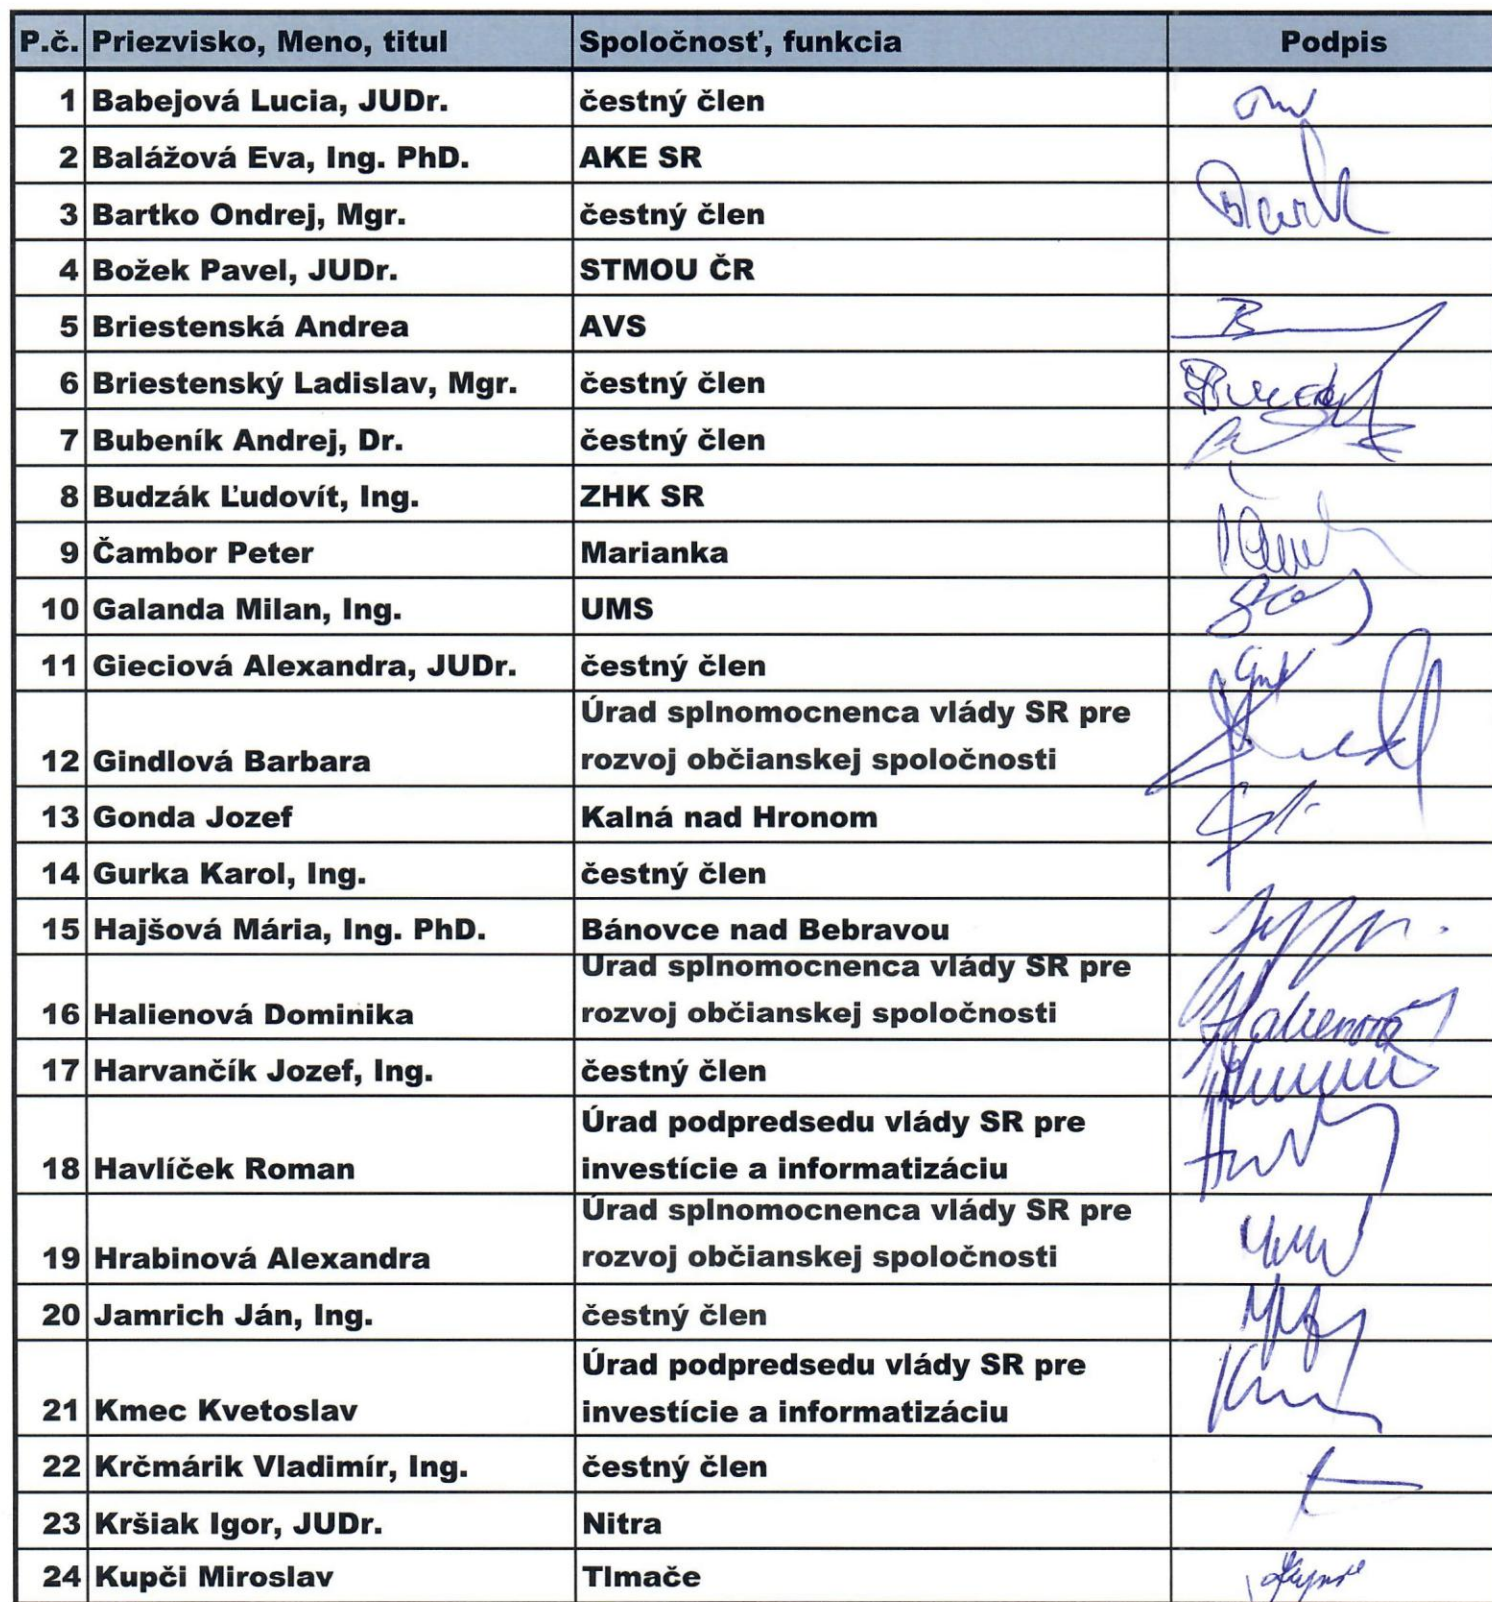 P.č. Priezvisko, Meno, titul Spoločnosť, funkcia Podpis
1 Babejová Lucia, JUDr. čestný člen
2 Balážová Eva, Ing. PhD. AKE SR
3 Bartko Ondrej, Mgr. čestný člen
4 Božek Pavel, JUDr. STMOU ČR
5 Briestenská Andrea AVS
6 Briestenský Ladislav, Mgr. čestný člen
7 Bubeník Andrej, Dr. čestný člen
8 Budzák Ľudovít, Ing. ZHK SR
9 Čambor Peter Marianka
10 Galanda Milan, Ing. UMS
11 Gieciová Alexandra, JUDr. čestný člen
Úrad splnomocnenca vlády SR pre
12 Gindlová Barbara rozvoj občianskej spoločnosti
13 Gonda Jozef Kalná nad Hronom
14 Gurka Karol, Ing. čestný člen
15 Hajšová Mária, Ing. PhD. Bánovce nad Bebravou
Úrad splnomocnenca vlády SR pre
16 Halienová Dominika rozvoj občianskej spoločnosti Halienová
17 Harvančík Jozef, Ing. čestný člen
Úrad podpredsedu vlády SR pre
18 Havlíček Roman investície a informatizáciu
Úrad splnomocnenca vlády SR pre
19 Hrabinová Alexandra rozvoj občianskej spoločnosti
20 Jamrich Ján, Ing. čestný člen
Úrad podpredsedu vlády SR pre
21 Kmec Kvetoslav investície a informatizáciu
22 Krčmárik Vladimír, Ing. čestný člen
23 Kršiak Igor, JUDr. Nitra
24 Kupči Miroslav Tlmače